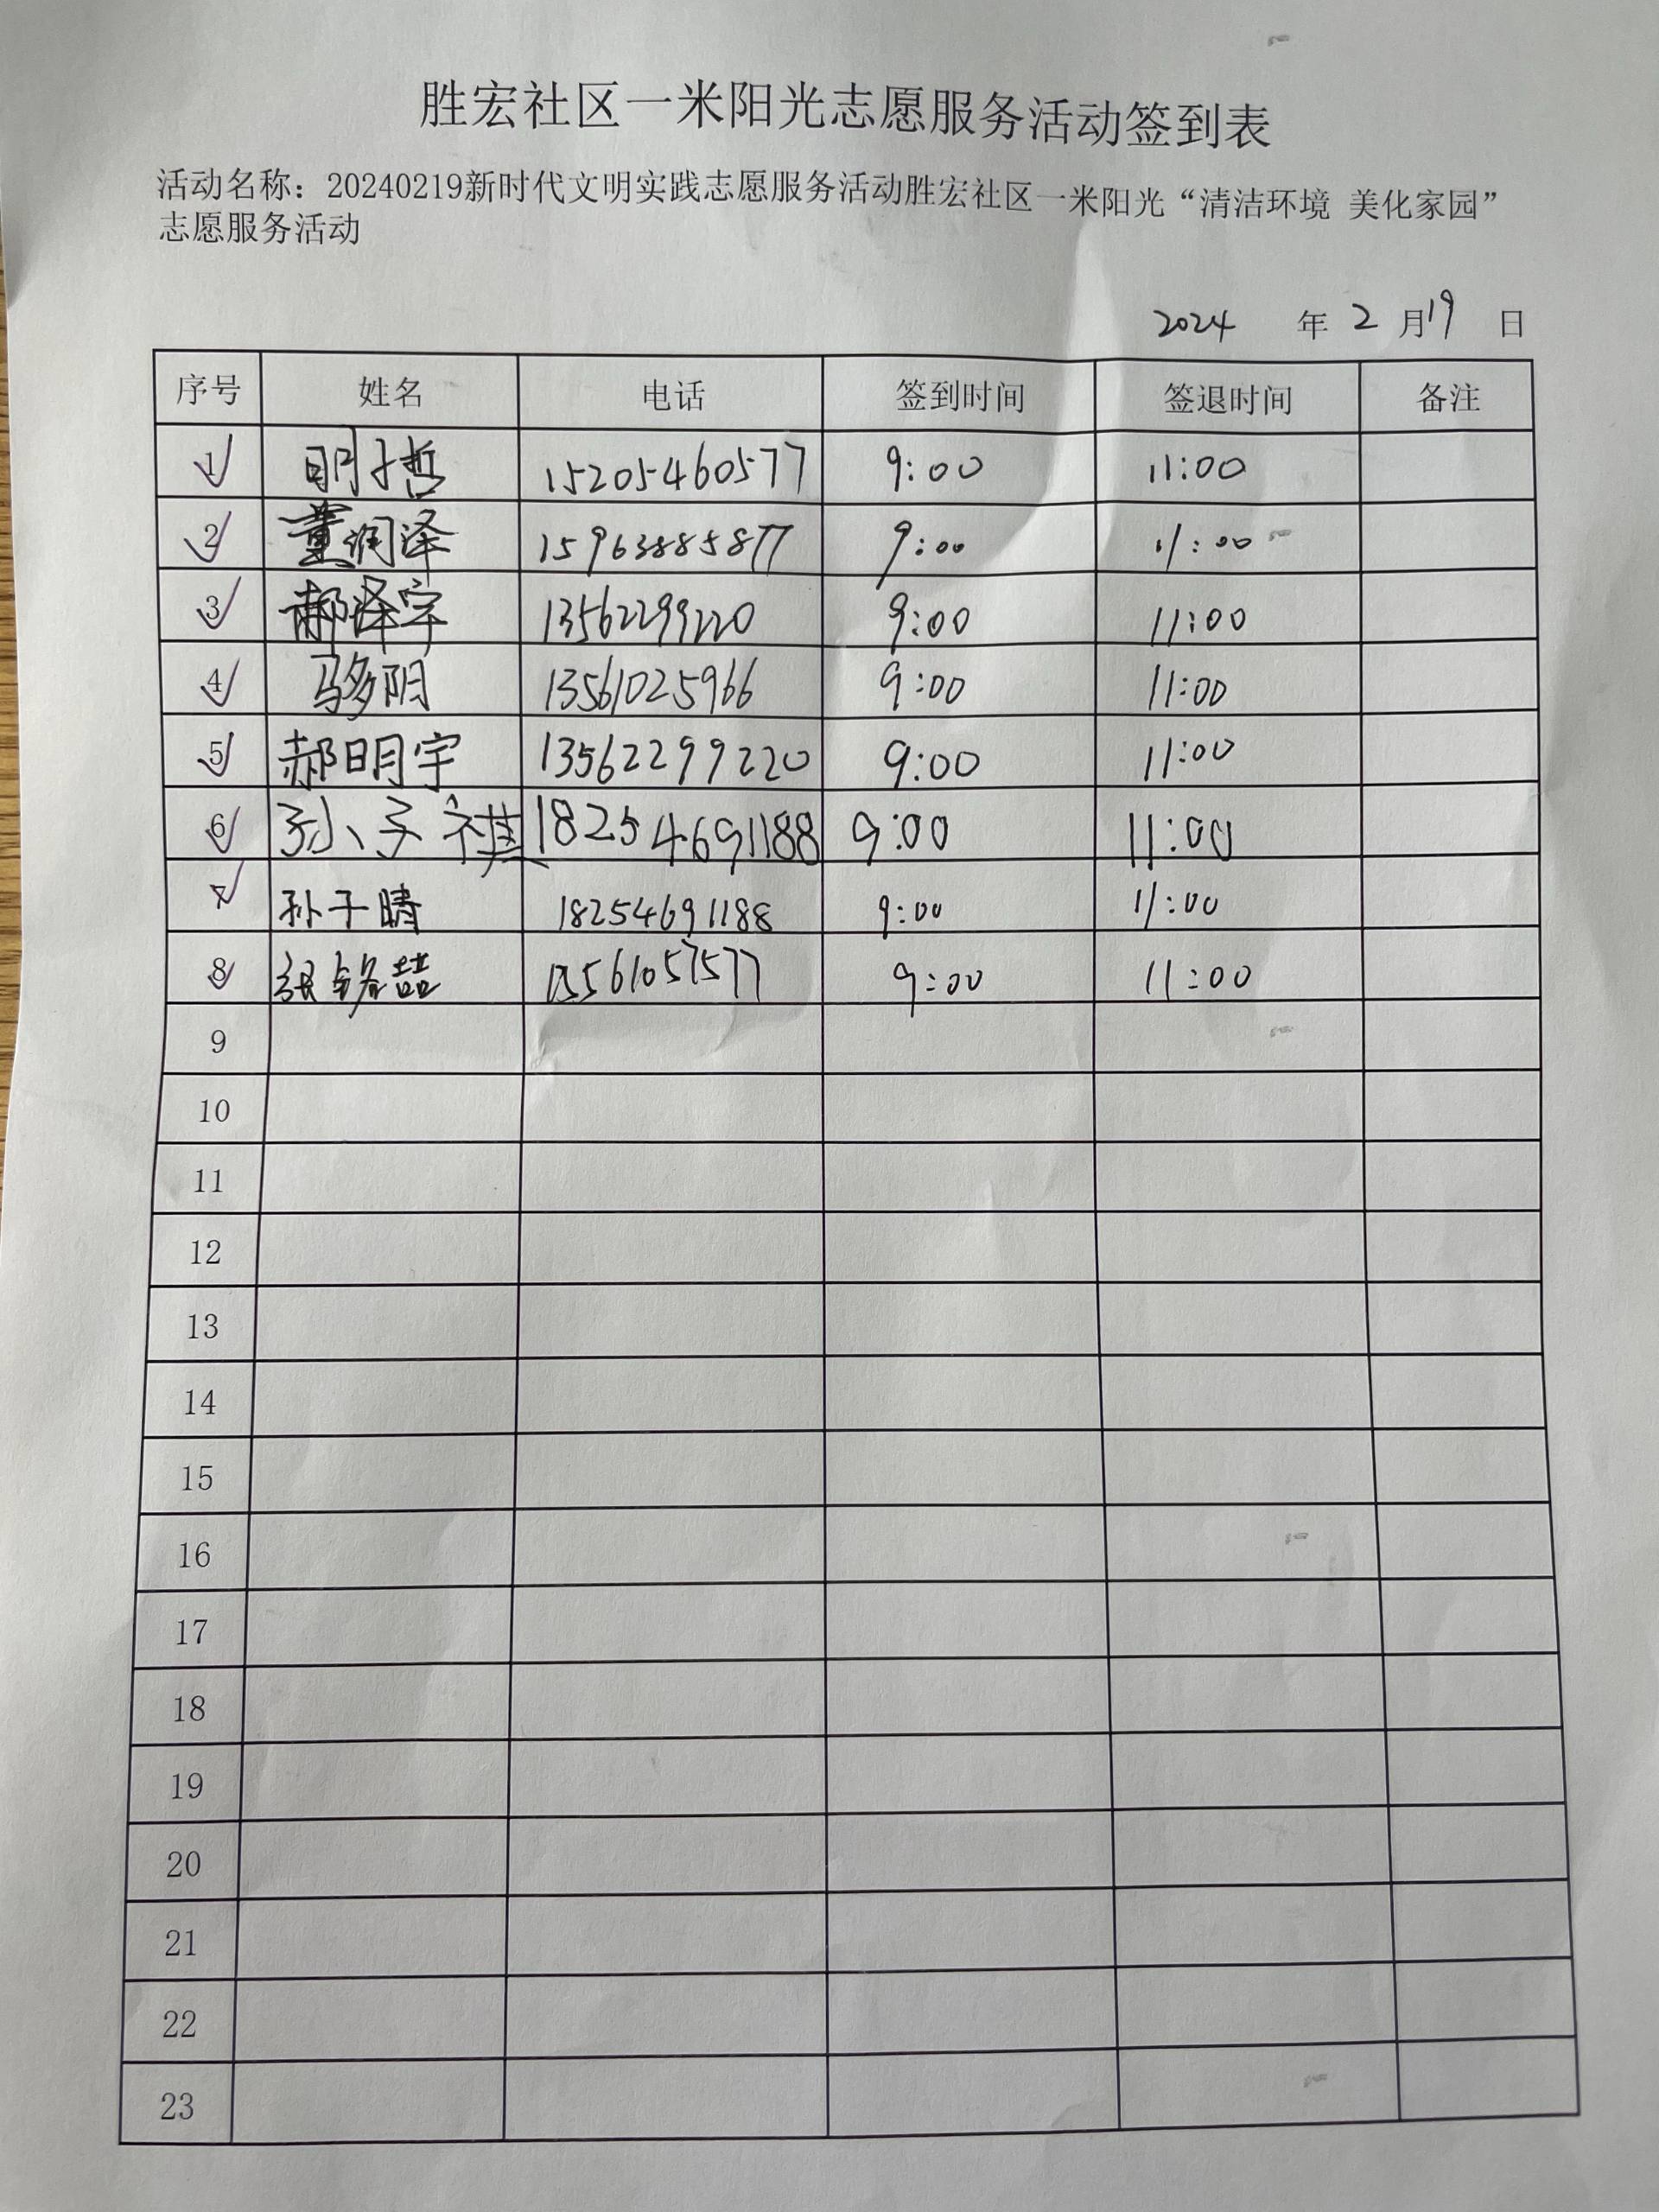 胜宏社区一米阳光志愿服务活动签到表
活动名称：20240219新时代文明实践志愿服务活动胜宏社区一米阳光“清洁环境 美化家园”
志愿服务活动
2024 年 2 月 19 日
序号 姓名 电话 签到时间 签退时间 备注
1 明子哲 15205460577 9:00 11:00
2 董润泽 15963885877 9:00 11:00
3 郝泽宇 13562299220 9:00 11:00
4 13561025966 9:00 11:00
5 郝明宇 13562299220 9:00 11:00
6 孙子祺 18254691188 9:00 11:00
7 孙子晴 18254691188 9:00 11:00
8 张铭喆 15561057577 9:00 11:00
9
10
11
12
13
14
15
16
17
18
19
20
21
22
23